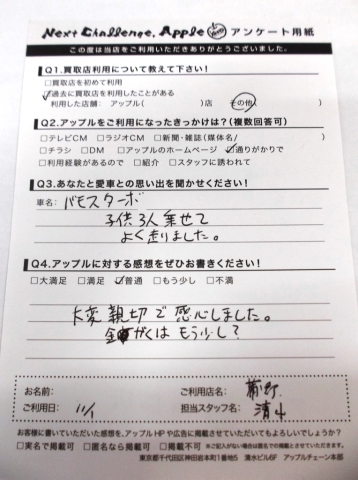 Next Challenge. Apple アンケート用紙
この度は当店をご利用いただきありがとうございました。
Q1.買取店利用について教えて下さい!
□買取店を初めて利用
☑過去に買取店を利用したことがある
利用した店舗: アップル( )店 その他( )
Q2.アップルをご利用になったきっかけは?(複数回答可)
□テレビCM □ラジオCM □新聞・雑誌(媒体名/ )
□チラシ □DM □アップルのホームページ ☑通りがかりで
□利用経験があるので □紹介 □スタッフに誘われて
Q3.あなたと愛車との思い出を聞かせください!
車名: バモスターボ
子供3人乗せて
よく走りました。
Q4.アップルに対する感想をぜひお書きください!
□大満足 □満足 ☑普通 □もう少し □不満
大変親切で感心しました。
金がくはもう少し?
お名前:
ご利用店名:
ご利用日: 11/1
担当スタッフ名: 清水
お客様に書いていただいた感想を、アップルHPや広告に掲載させていただいてもよろしいでしょうか?
□実名で掲載可 □匿名なら掲載可 □掲載不可 ※ご記入がない場合は匿名での掲載とさせていただきます。
東京都千代田区神田岩本町1番地5 清水ビル6F アップルチェーン本部